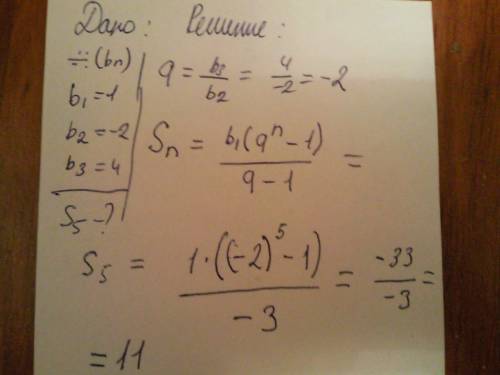 Дано: Решение:
∺(bn)
b₁ = 1
b₂ = -2
b₃ = 4
S₅ - ?
q = b₃/b₂ = 4/-2 = -2
Sₙ = b₁(qⁿ - 1)/(q - 1) =
S₅ = 1·((-2)⁵ - 1)/-3 = -33/-3 =
= 11